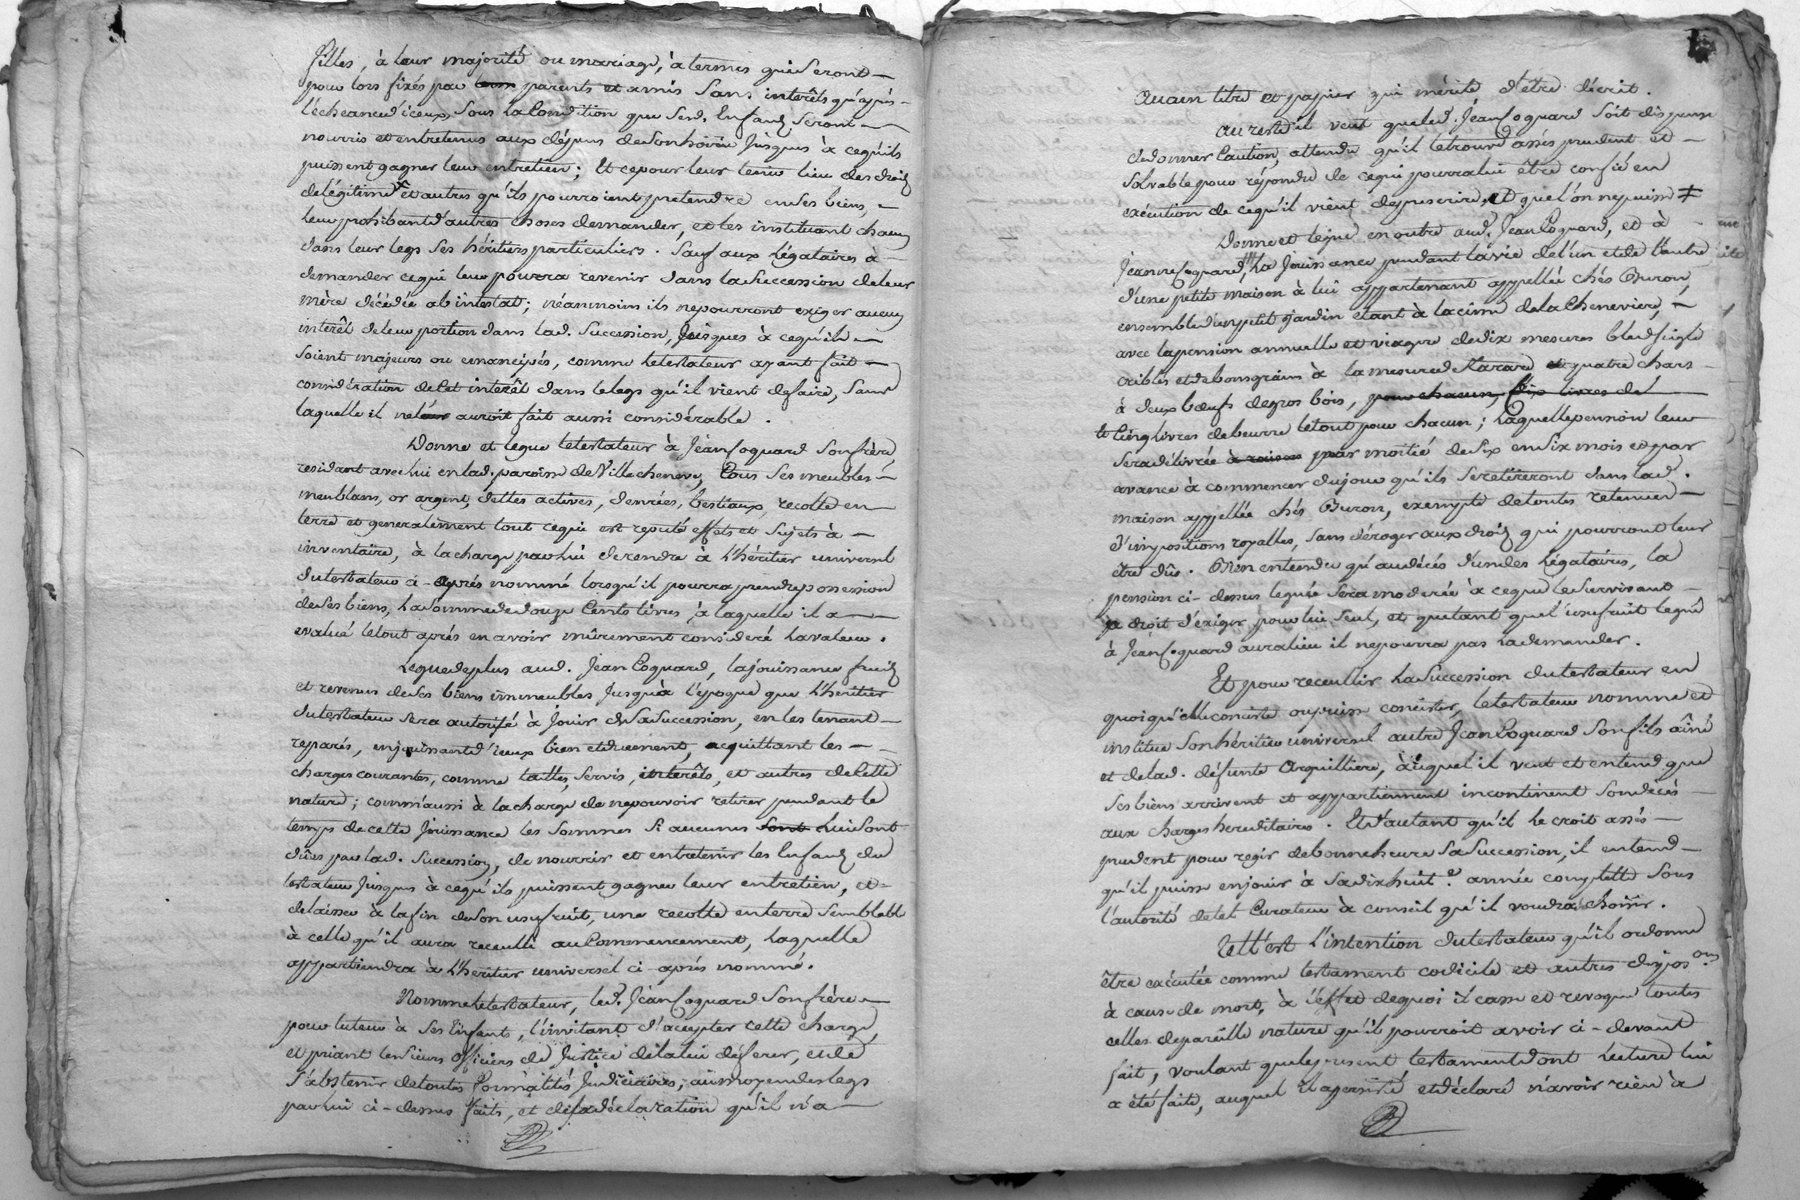 filles, à leur majorité ou mariage, à termes qui seront
pour lors fixés par leurs parents et amis sans interêts qu'après
l'écheance d'iceux, sous la Condition que sesd. Enfants seront
nourris et entretenus aux dépens de son hoirie jusques à cequ'ils
puissent gagner leur entretien; Et ce pour leur tenir lieu des droits
de légitime et autres qu'ils pourroient pretendre en ses biens,
leur prohibant d'autres choses demander, et les instituant chacun
dans leur legs ses héritiers particuliers. Sauf aux Légataires à
demander cequi leur pourra revenir dans la succession de leur
mère décédée ab intestat; néanmoins ils ne pourront exiger aucun
interêt de leur portion dans lad. succession, jusques à cequ'ils
soient majeurs ou emancipés, comme le testateur ayant fait
considération de Cet interêt dans le legs qu'il vient de faire, sans
laquelle il ne l'auroit fait aussi considérable.
Donne et legue le testateur à Jean Coquard son frère
residant avec lui en lad. paroisse de Villecheneve, Tous ses meubles
meublans, or argent, dettes actives, denrées, bestiaux, recolte en
terre et generalement tout cequi est reputé effets et sujets à
inventaire, à la charge par Lui de rendre à L'héritier universel
du testateur ci-après nommé lorsqu'il pourra prendre possession
de ses biens, La somme de douze Cents livres, à laquelle il a
evalué le tout après en avoir mûrement consideré la valeur.
Legue de plus aud. Jean Coquard, la jouissance fruits
et revenus de ses biens immeubles jusqu'à l'époque que L'héritier
du testateur sera autorisé à jouir de sa succession, en les tenant
reparés, en jouissant d'iceux bien et duement, acquittant les
charges courantes, comme tailles, servis, interêts, et autres de Cette
nature; comm'aussi à la charge de ne pouvoir retirer pendant le
temps de cette jouissance les sommes si aucunes sont lui sont
dûes par lad. succession, de nourrir et entretenir les Enfants du
testateur jusques à cequ'ils puissent gagner leur entretien, et
de laisser à la fin de son usufruit, une recolte en terre semblable
à celle qu'il aura receuilli au Commencement, Laquelle
appartiendra à L'héritier universel ci-après nommé.
Nomme le testateur, led. Jean Coquard son frère
pour tuteur à ses Enfants, l'invitant d'accepter cette charge,
et priant les sieurs officiers de justice de la lui déferer, et de
s'abstenir de toutes formalités judiciaires; au moyen des legs
par lui ci-dessus faits, et de sa déclaration qu'il n'a
Aucun titre et papier qui mérite d'être décrit.
Au reste il veut que led. Jean Coquard soit dispensé
de donner Caution, attendu qu'il le trouve assés prudent et
solvable pour répondre de cequi pourra lui être confié en
exécution de cequ'il vient de prescrire, et que l'on ne puisse ≠
Donne et legue en outre aud. Jean Coquard, et à
Jeanne Coquard, La jouissance pendant la vie de l'un et de l'autre
d'une petite maison à lui appartenant appellée chés Buron,
ensemble d'un petit jardin etant à la cime de la Cheneviere,
avec la pension annuelle et viagre de dix mesures bled seigle
criblé et de bons grains à la mesure de Tarare et quatre chars
à deux bœufs de gros bois, pour chacun, six livres de
et cinq livres de beurre le tout pour chacun; Laquelle pension leur
sera délivrée à raison par moitié de six en six mois et par
avance à commencer du jour qu'ils se retireront dans lad.
maison appellée chés Buron, exempte de toutes retenues
d'impositions royalles, sans déroger aux droits qui pourront leur
être dûs. Bien entendu qu'au décès d'un des Légataires, la
pension ci-dessus leguée sera moderée à ceque le survivant
a droit d'exiger pour lui seul, et qu'étant quel'usufruit legué
à Jean Coquard aura lieu il ne pourra pas la demander.
Et pour receuillir La succession du testateur en
quoi qu'elle consiste ou puisse consister, le testateur nomme et
institue son héritier universel autre Jean Coquard son fils aîné
et de lad. défunte Arquilliere, auquel il veut et entend que
ses biens arrivent et appartiennent incontinent son decés
aux charges hereditaires. Et d'autant qu'il le croit assés
prudent pour regir de bonne heure sa succession, il entend
qu'il puisse en jouir à sa dix huit.e année complette sous
l'autorité de tel Curateur à conseil qu'il voudra choisir.
Tell'est l'intention du testateur qu'il ordonne
être exécutée comme testament codicile et autres dispos.ons
à cause de mort, à l'effet dequoi il casse et revoque toutes
celles de pareille nature qu'il pourroit avoir ci-devant
fait, voulant que le present testament dont lecture lui
a été faite, auquel il a persisté et déclaré n'avoir rien à